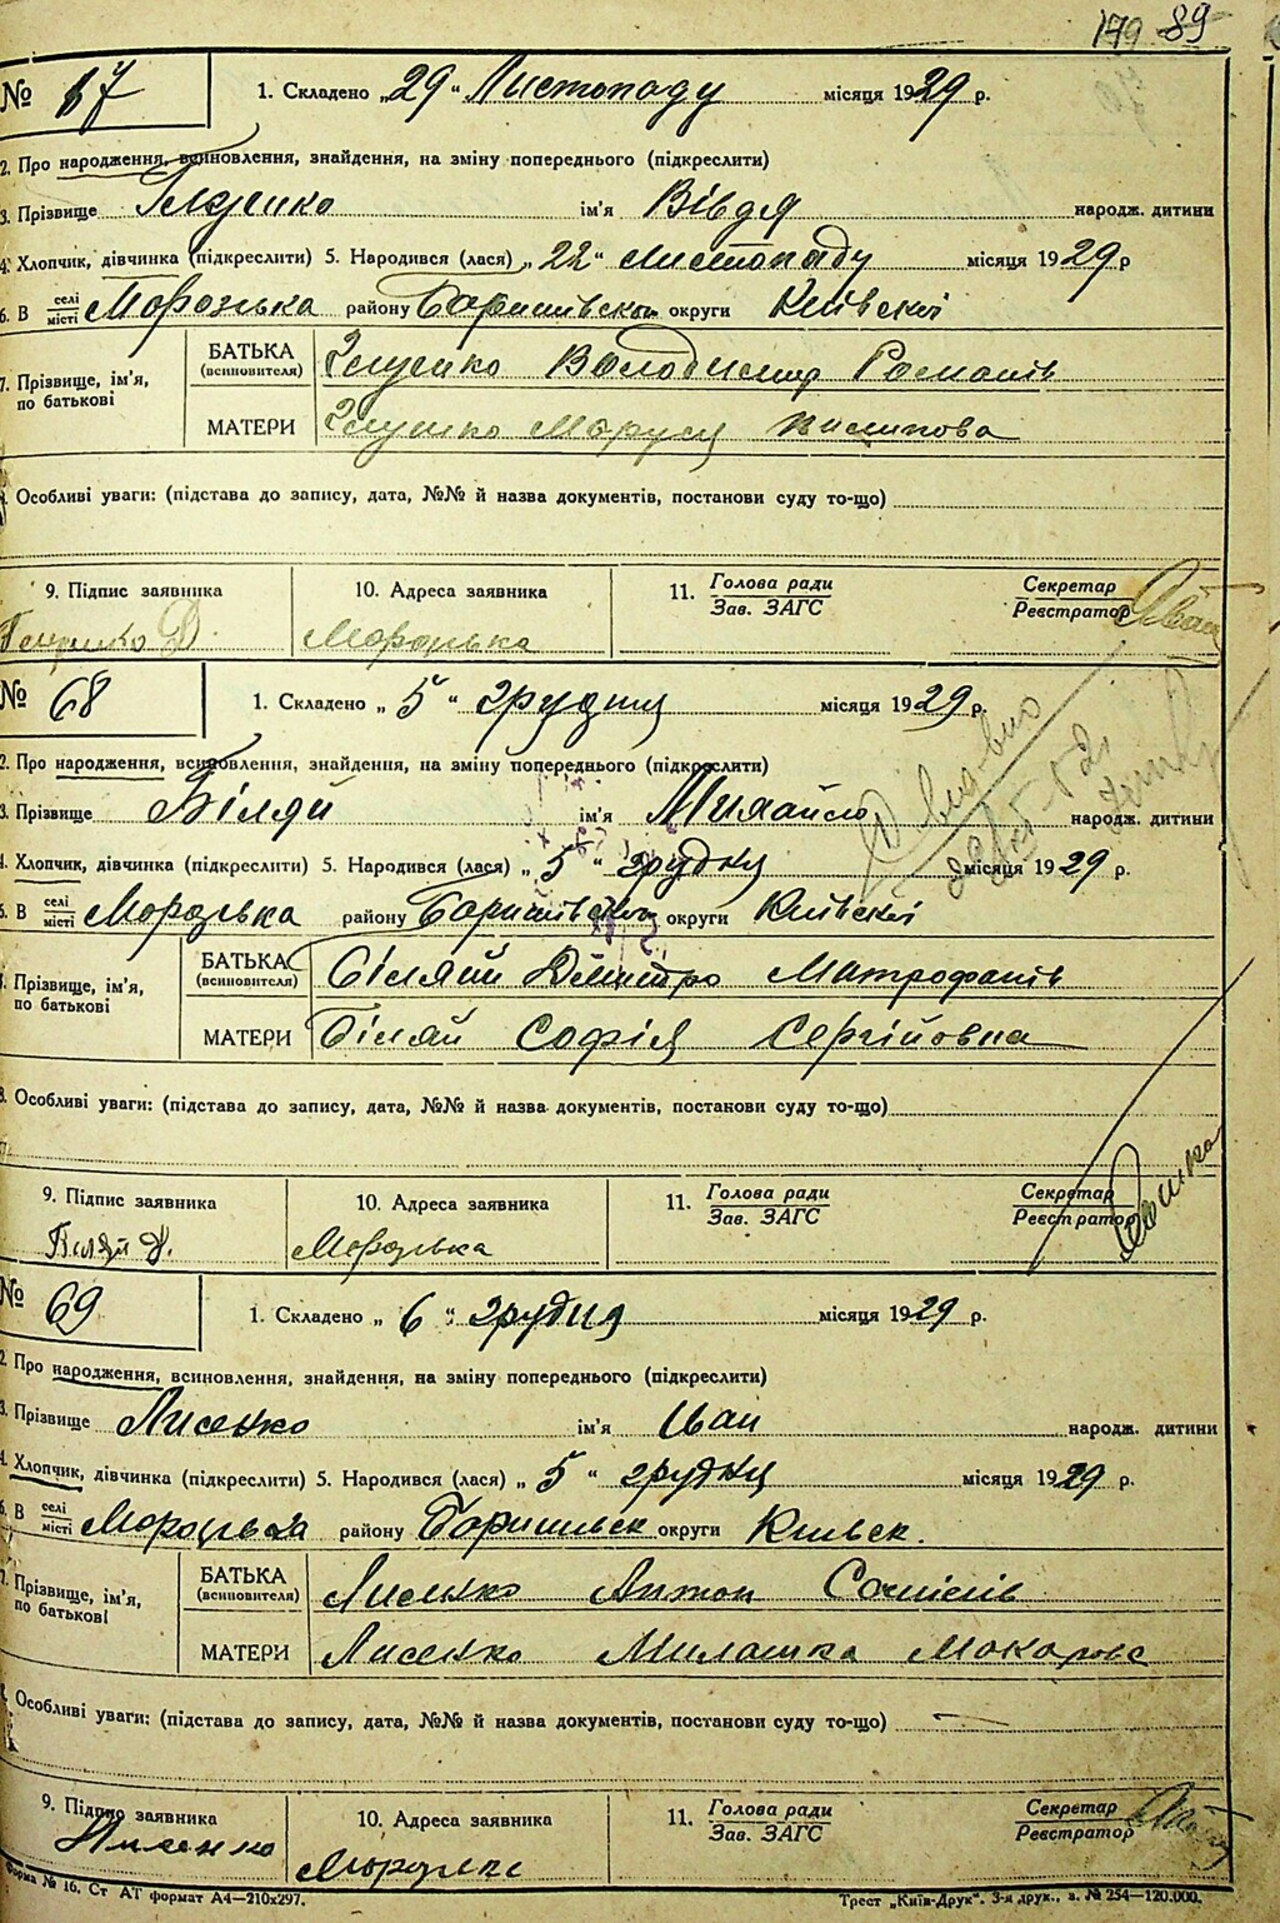 179 89
№ 67 1. Складено „29" Листопаду місяця 1929 р.
2. Про народження, всиновлення, знайдення, на зміну попереднього (підкреслити)
3. Прізвище ім'я Вівдя народж. дитини
4. Хлопчик, дівчинка (підкреслити) 5. Народився (лася) „22" листопаду місяця 1929 р
6. В селі місті Морозівка району Баришівськ округи Київської
7. Прізвище, ім'я, по батькові БАТЬКА (всиновителя) Володимир Романів
МАТЕРИ Маруся
Особливі уваги: (підстава до запису, дата, №№ й назва документів, постанови суду то-що)
9. Підпис заявника 10. Адреса заявника 11. Голова ради Зав. ЗАГС Секретар Реєстратор
Морозівка
№ 68 1. Складено „5" грудня місяця 1929 р.
2. Про народження, всиновлення, знайдення, на зміну попереднього (підкреслити)
3. Прізвище Біляй ім'я Михайло народж. дитини
4. Хлопчик, дівчинка (підкреслити) 5. Народився (лася) „5" грудня місяця 1929 р.
6. В селі місті Морозівка району Баришівськ округи Київської
Прізвище, ім'я, по батькові БАТЬКА (всиновителя) Біляй Дмитро Митрофанів
МАТЕРИ Біляй Софія Сергійовна
8. Особливі уваги: (підстава до запису, дата, №№ й назва документів, постанови суду то-що)
9. Підпис заявника 10. Адреса заявника 11. Голова ради Зав. ЗАГС Секретар Реєстратор
Біляй Д. Морозівка
№ 69 1. Складено „6" грудня місяця 1929 р.
2. Про народження, всиновлення, знайдення, на зміну попереднього (підкреслити)
3. Прізвище Лисенко ім'я Іван народж. дитини
4. Хлопчик, дівчинка (підкреслити) 5. Народився (лася) „5" грудня місяця 1929 р.
6. В селі місті Морозівка району Баришівськ округи Київськ.
7. Прізвище, ім'я, по батькові БАТЬКА (всиновителя) Лисенко Антон
МАТЕРИ Лисенко Милашка Макарова
Особливі уваги: (підстава до запису, дата, №№ й назва документів, постанови суду то-що)
9. Підпис заявника 10. Адреса заявника 11. Голова ради Зав. ЗАГС Секретар Реєстратор
Лисенко
Форма № 16. Ст АТ формат А4—210х297. Трест „Київ-Друк". 3-я друк., з. № 254—120.000.